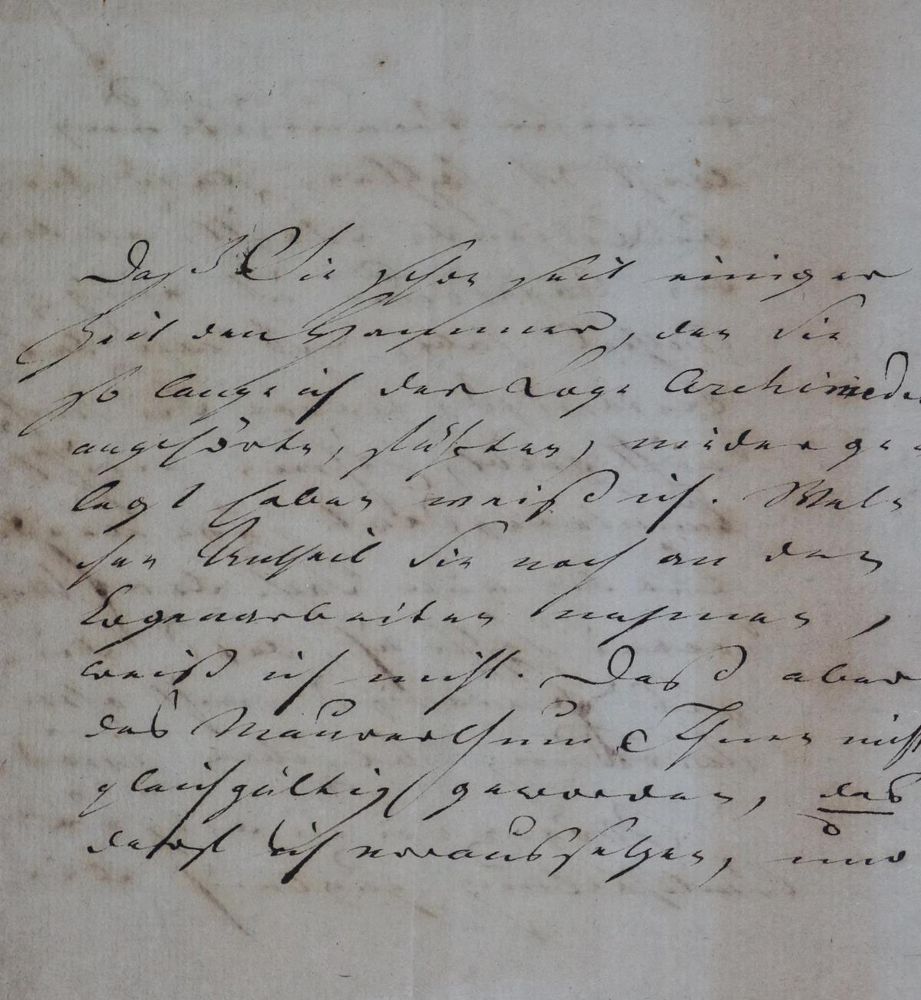 Daß Sie schon seit einiger
Zeit den Hammer, den Sie
so lange ich der Loge Archimede
angehörte, führten, niederge
legt haben weiß ich. Wel
chen Antheil Sie noch an den
Logenarbeiten nehmen,
weiß ich nicht. Daß aber
das Maurerthum Ihnen nicht
gleichgültig geworden, das
darf ich voraussetzen, und